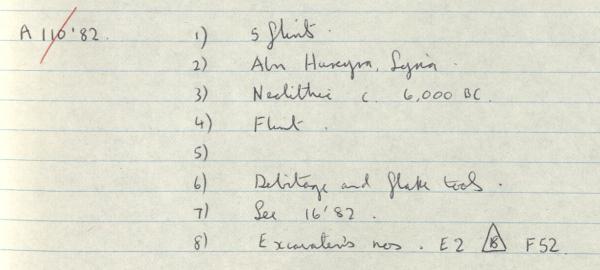 A 110'82. 1) 5 flints.
2) Abu Hureyra, Syria.
3) Neolithic c. 6,000 BC.
4) Flint.
5)
6) Debitage and flake tools.
7) See 16'82.
8) Excavator's nos. E2 18 F52